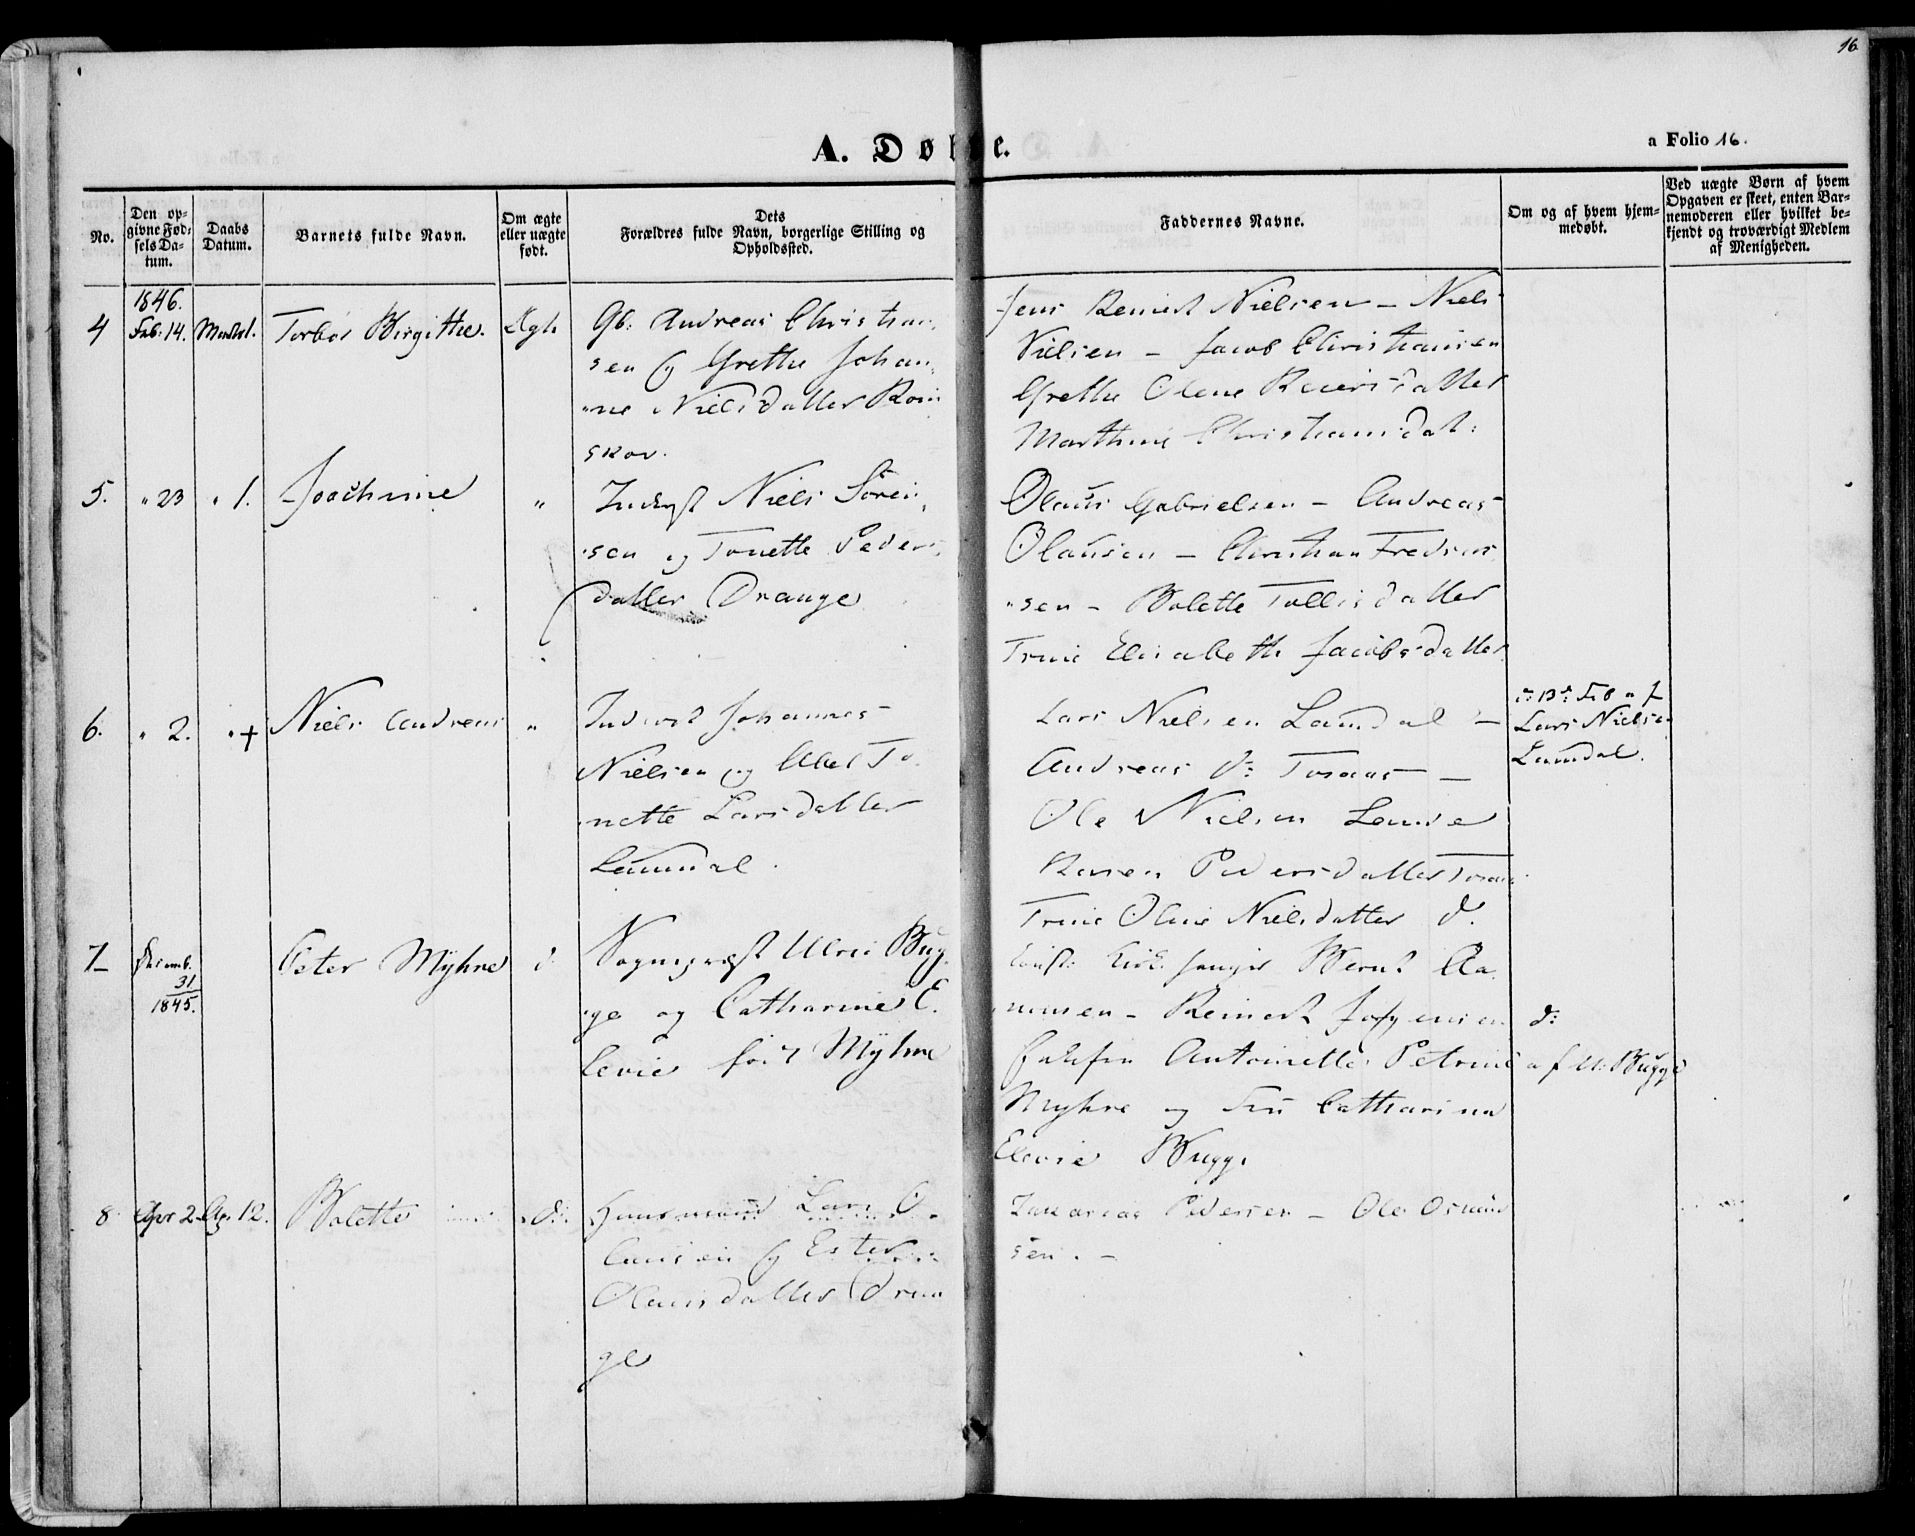 16
A. Døbte.
a Folio 16.
No.
Den op-
givne Fød-
sels Da-
tum.
Daabs
Datum.
Barnets fulde Navn.
Om ægte
eller uægte
født.
Dets
Forældres fulde Navn, borgerlige Stilling og
Opholdssted.
Faddernes Navne.
Om og af hvem hjem-
medøbt.
Ved uægte Børn af hvem
Opgaven er skeet, enten Bar-
nemoderen eller hvilket be-
kjendt og troværdigt Medlem
af Menigheden.
1846.
4
Feb. 14.
Birgitte.
Ægte
Gb: Andreas Christian
sen og Grethe Johan
ne Nielsdatter
skov.
Jens Reinert Nielsen - Niels
Nielsen - Jacob Christiansen
Grethe Olene Reiersdatter
Marthine Christiansdat:
5.
" 23
" 1.
Joachime
"
Inderst Niels Søren
sen og Tonette Peders
datter Drange
Olaus Gabrielsen - Andreas
Olausen - Christian
sen - Bolette Tollisdatter
Trine Elisabeth Jacobsdatter
6.
" 2.
Niels Andreas
"
Inderst Johannes
Nielsen og Abel To
nette Larsdatter
Laundal
Lars Nielsen Laundal -
Andreas d: Tosaas -
Ole Nielsen Lende
Karen Pedersdatter
Trine Oline Nielsdatter d.
d: 13de Feb af
Lars Nielsen
Laundal.
7
31
1845.
Peter Myhre
d:
Sognepræst Ulric Bug
ge og Catharine E
levie født Myhre
Kirkesanger Bernt Aa
nensen - Reinert Jørgensen
Antoinette Petrine
Myhre og Fru Catharina
Elevie Bugge
d:
af U: Bugge
8
Apr 2
Ap. 12.
Bolette
d:
Huusmand Lars O
lausen og Ester
Olausdatter Dran
ge
Zakarias Pedersen - Ole Osmund
sen. -